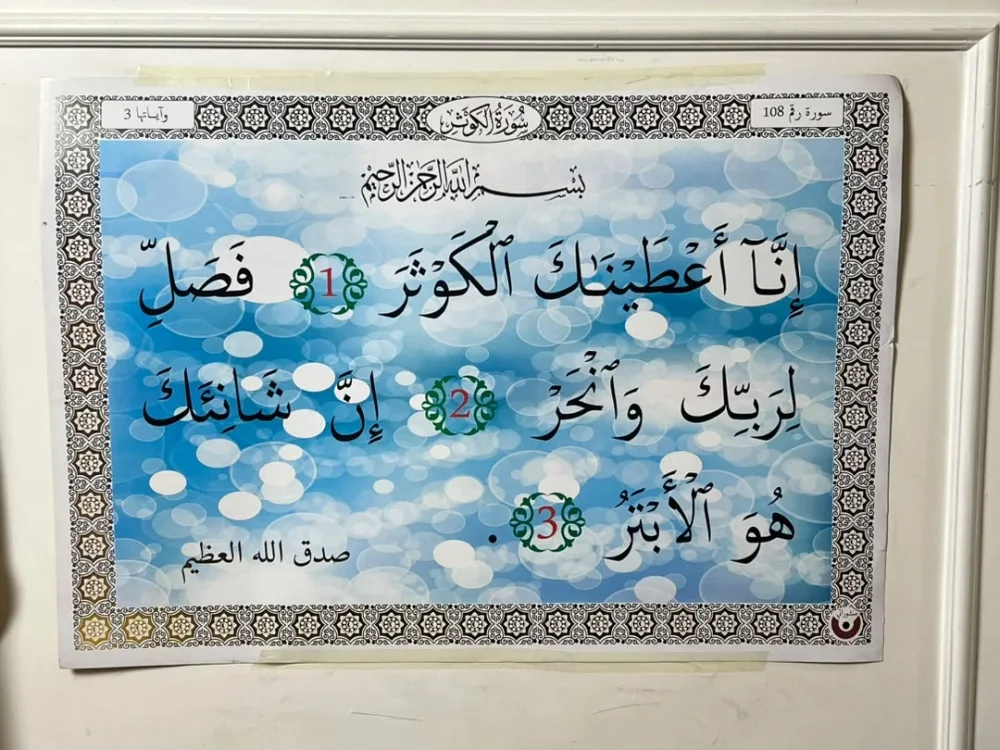 سورة رقم 108
سُورَةُ الْكَوْثَرِ
وآياتها 3
بِسْمِ اللَّهِ الرَّحْمَنِ الرَّحِيمِ
إِنَّآ أَعْطَيْنَٰكَ ٱلْكَوْثَرَ 1 فَصَلِّ
لِرَبِّكَ وَٱنْحَرْ 2 إِنَّ شَانِئَكَ
هُوَ ٱلْأَبْتَرُ 3 .
صدق الله العظيم